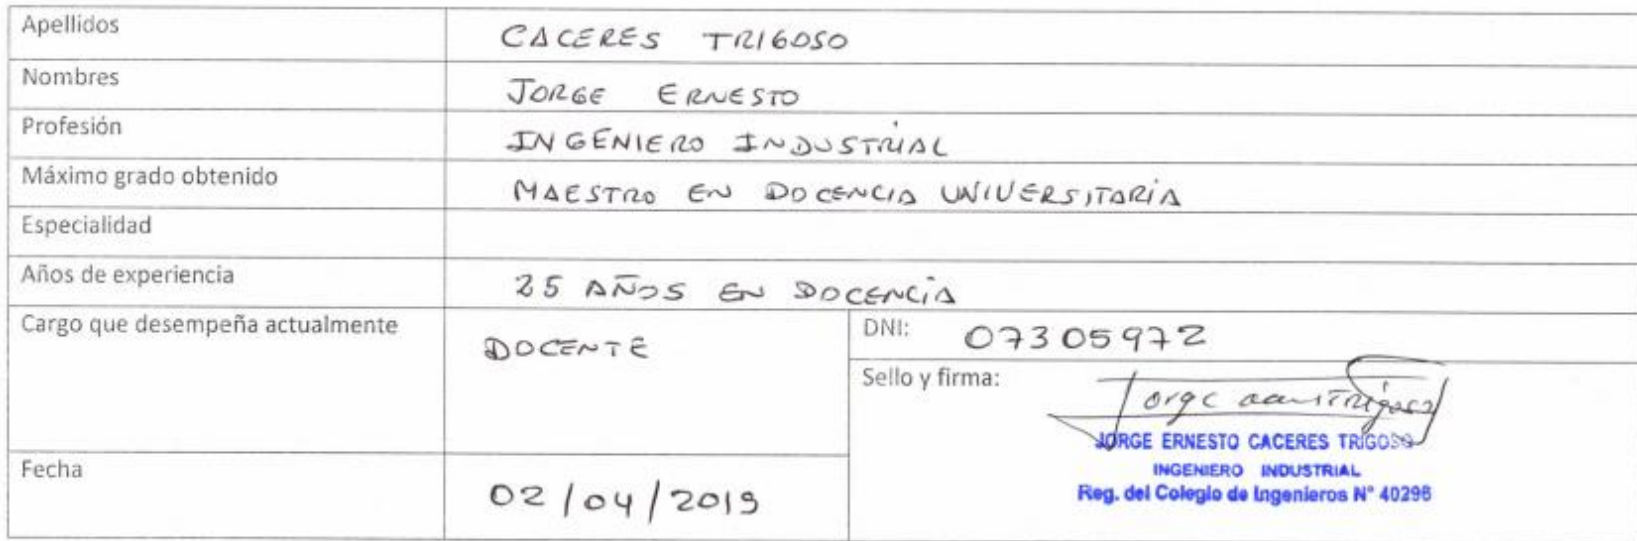 Apellidos CACERES TRIGOSO
Nombres JORGE ERNESTO
Profesión INGENIERO INDUSTRIAL
Máximo grado obtenido MAESTRO EN DOCENCIA UNIVERSITARIA
Especialidad
Años de experiencia 25 AÑOS EN DOCENCIA
Cargo que desempeña actualmente DOCENTE
DNI: 07305972
Sello y firma:
Jorge Trigoso
JORGE ERNESTO CACERES TRIGOSO
INGENIERO INDUSTRIAL
Reg. del Colegio de Ingenieros N° 40296
Fecha 02/04/2019